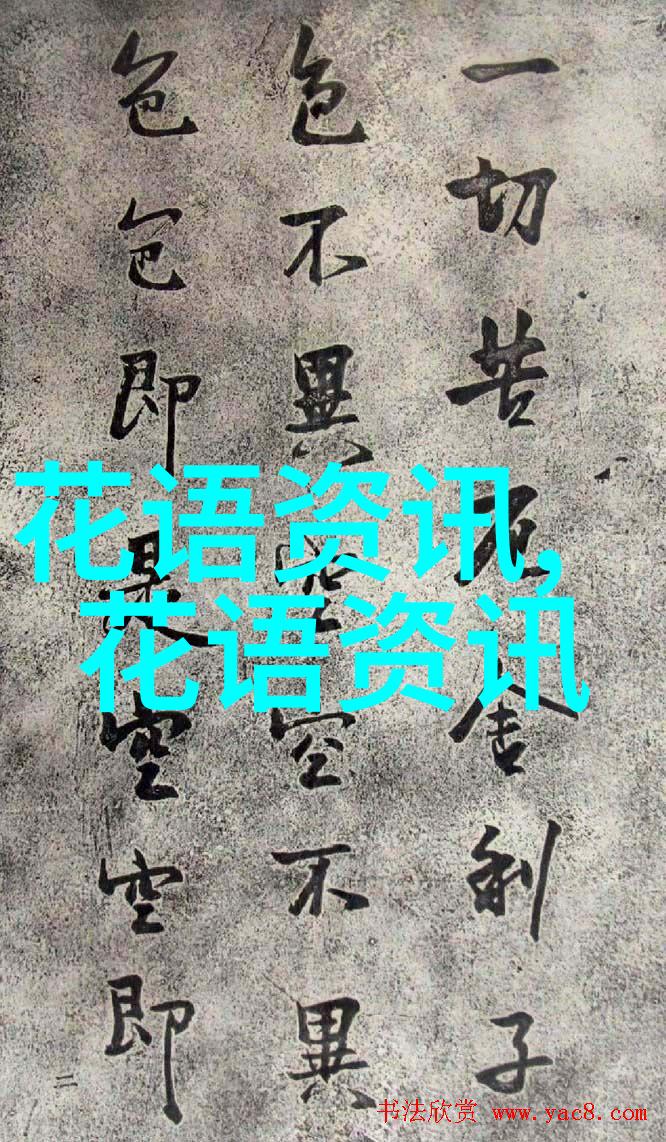 一切苦厄舍利子
色不異空空不異
色色即是空空即
二
花语资讯,
花语资讯
书法欣赏 www.yac8.com